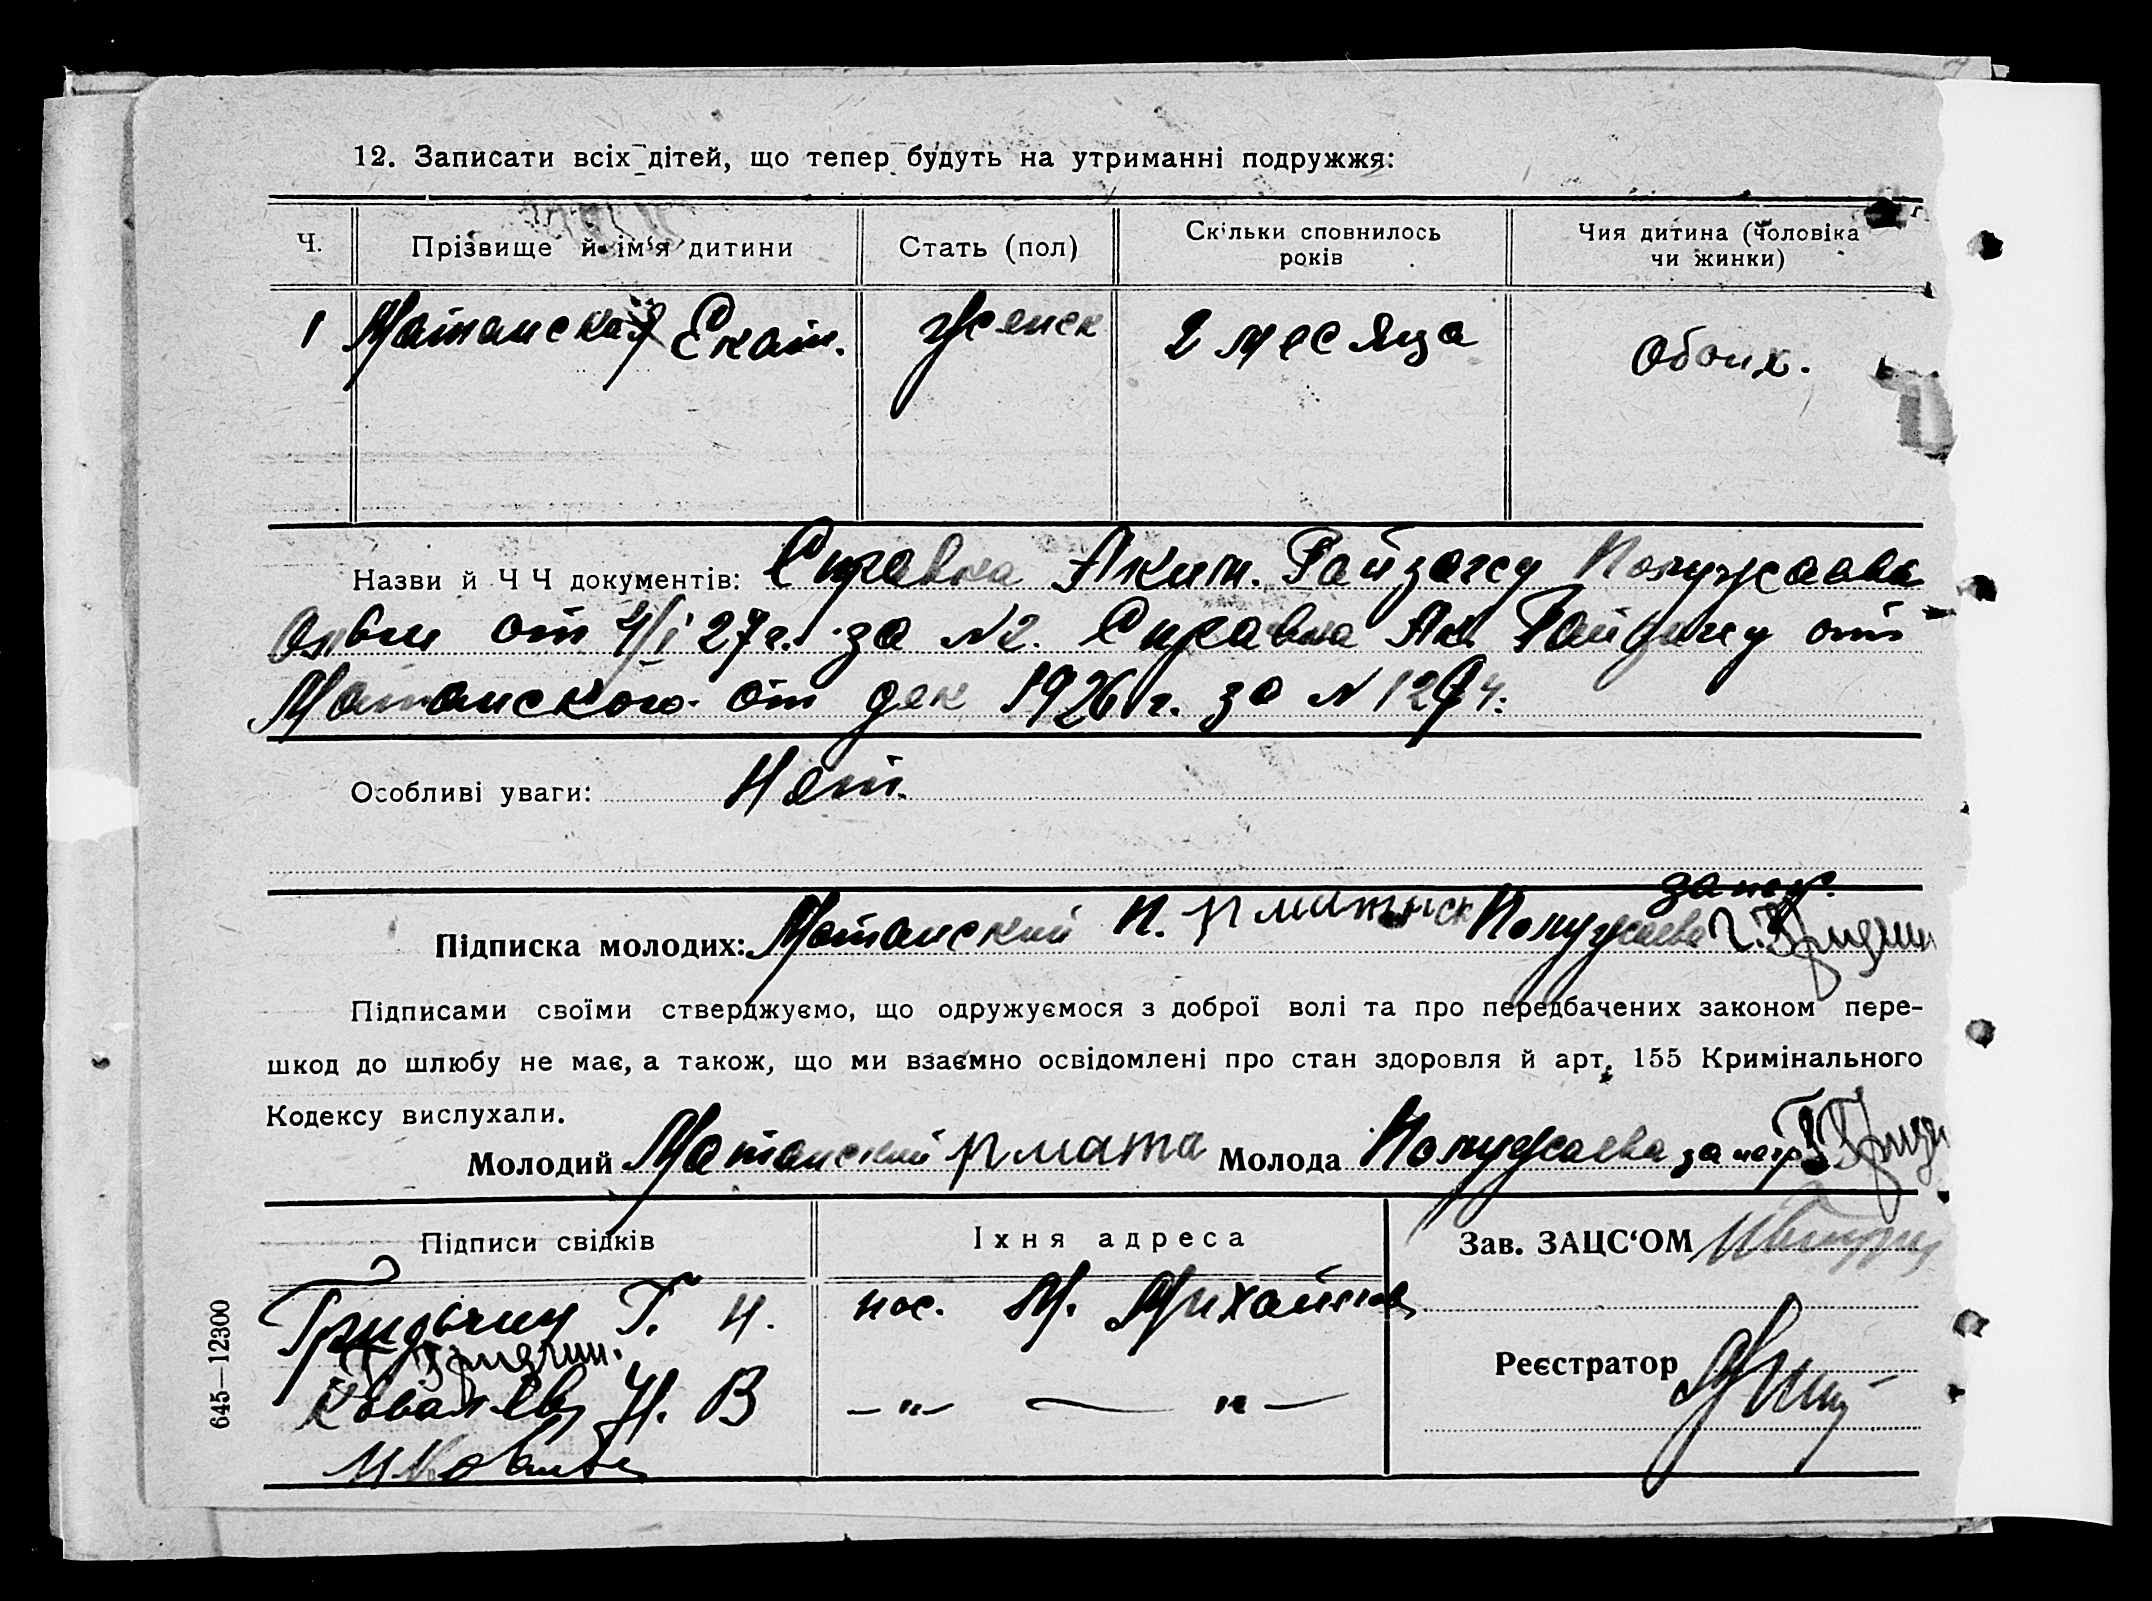 12. Записати всіх дітей, що тепер будуть на утриманні подружжя:
Ч.
Прізвище й ім'я дитини
Стать (пол)
Скільки сповнилось років
Чия дитина (чоловіка чи жинки)
1 Матанская Екат. Женск 2 месяца Обоих.
Назви й Ч Ч документів: Справка Аким. Райзагсу
от 4/I 27 г. за № 2. Справка Ак. Райзагсу от
Матанского от дек 1926 г. за №
Особливі уваги: Нет.
Підписка молодих: Матанский П.
Підписами своїми стверджуємо, що одружуємося з доброї волі та про передбачених законом пере-
шкод до шлюбу не має, а також, що ми взаємно освідомлені про стан здоровля й арт. 155 Кримінального
Кодексу вислухали.
Молодий Матанский Молода
Підписи свідків
Їхня адреса
Зав. ЗАЦС'ОМ
Гридчин Г. И. пос. М.
Гридчин.
Реєстратор
Ковалев И. В — " — — " —
645—12300